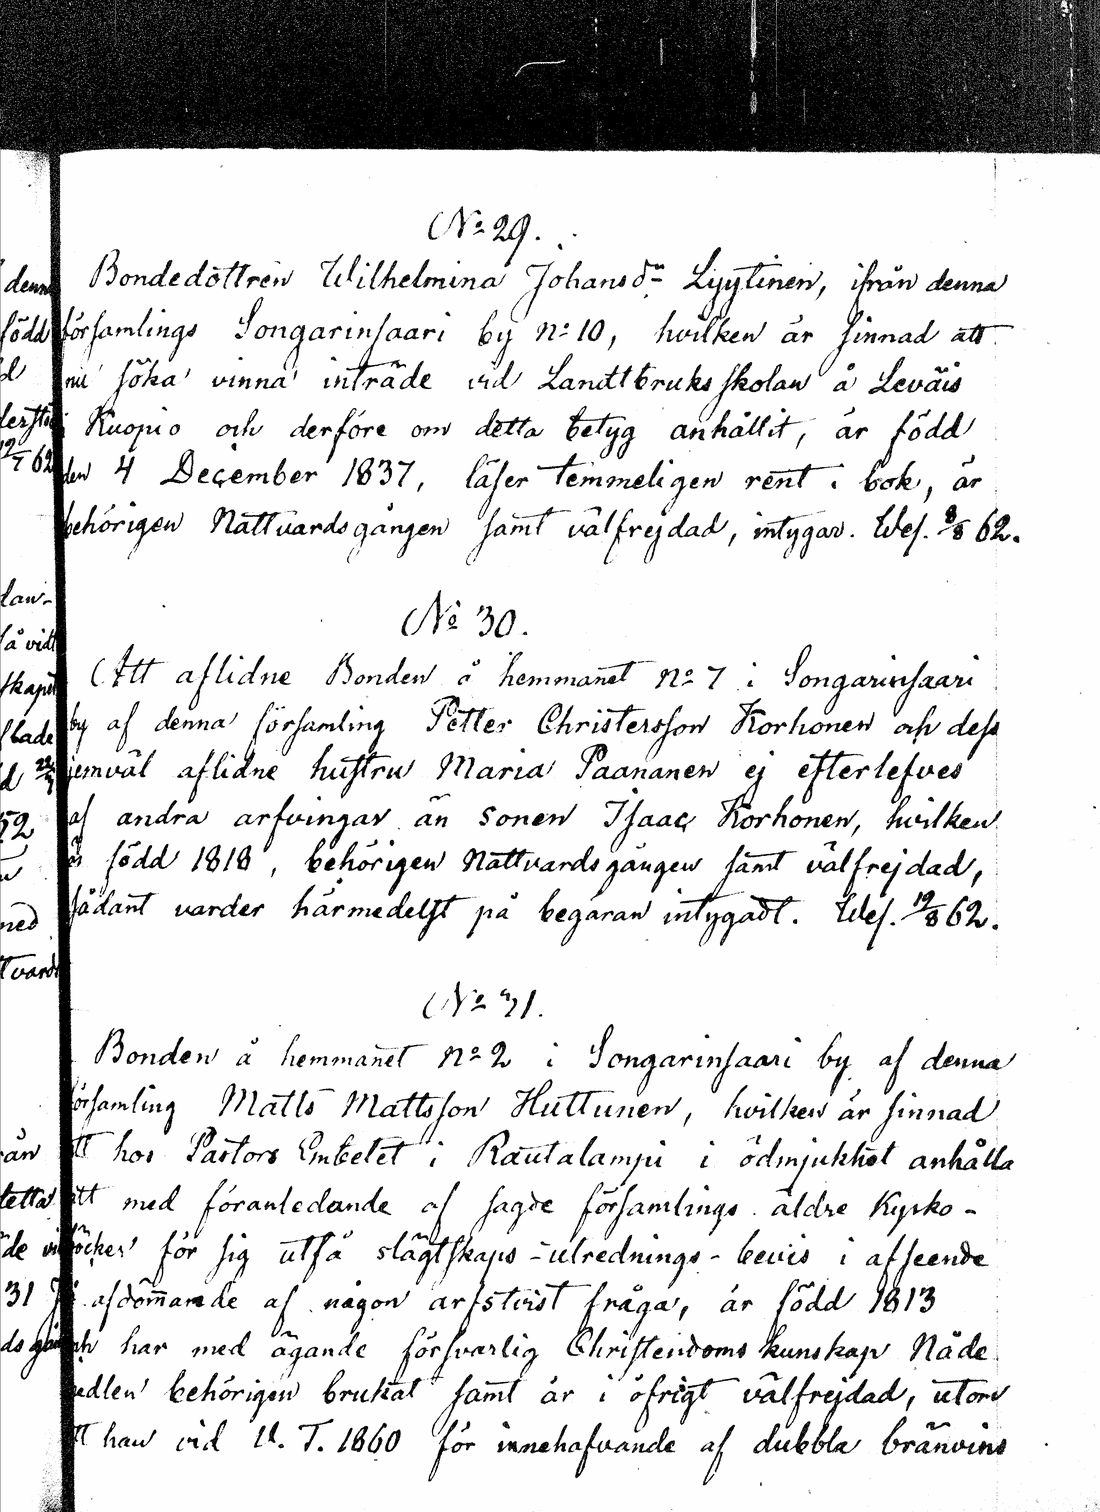 No 29.
Bondedottren Wilhelmina Johansdr Lyytinen, ifrån denna
församlings Songarinsaari by No 10, hvilken är sinnad att
nu söka vinna inträde vid Landtbruksskolan å Leväis
i Kuopio och derföre om detta betyg anhållit, är född
den 4 December 1837, läser temmeligen rent i bok, är
behörigen Nattvardsgången samt välfrejdad, intygar. Wes. 8/8 62.
No 30.
Att aflidne Bonden å hemmanet No 7 i Songarinsaari
by af denna församling Petter Christersson Korhonen och dess
jemväl aflidne hustru Maria Paananen ej efterlefves
af andra arfvingar än sonen Isaac Korhonen, hvilken
är född 1818, behörigen Nattvardsgången samt välfrejdad,
sådant varder härmedelst på begäran intygadt. Wes. 12/8 62.
No 31.
Bonden å hemmanet No 2 i Songarinsaari by af denna
församling Matts Mattsson Huttunen, hvilken är sinnad
att hos Pastors Embetet i Rautalampi i ödmjukhet anhålla
att med föranledande af sagde församlings äldre Kyrko-
böcker för sig utfå slägtskaps-utrednings-bevis i afseende
å afdömmande af någon arfstvist fråga, är född 1813
och har med ägande försvarlig Christendoms kunskap Nåde
medlen behörigen brukat samt är i öfrigt välfrejdad, utom
att han vid U. T. 1860 för innehafvande af dubbla bränvins